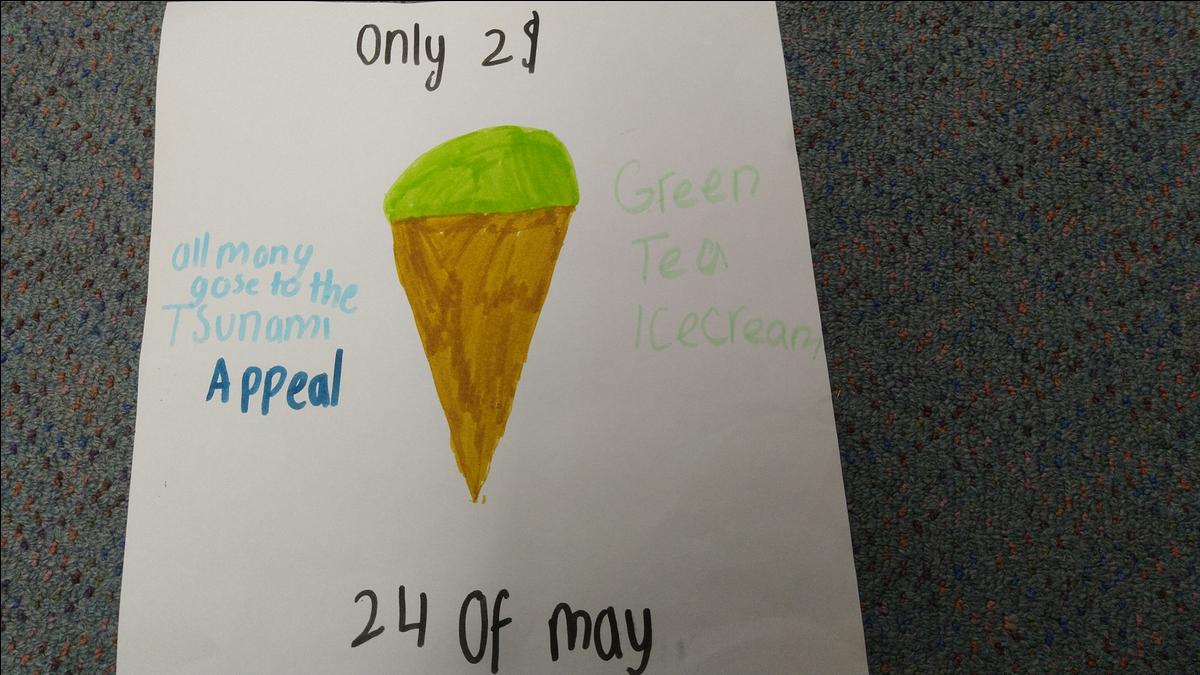 Only 2$
all mony
gose to the
Tsunami
Appeal
Green
Tea
Icecream
24 Of may